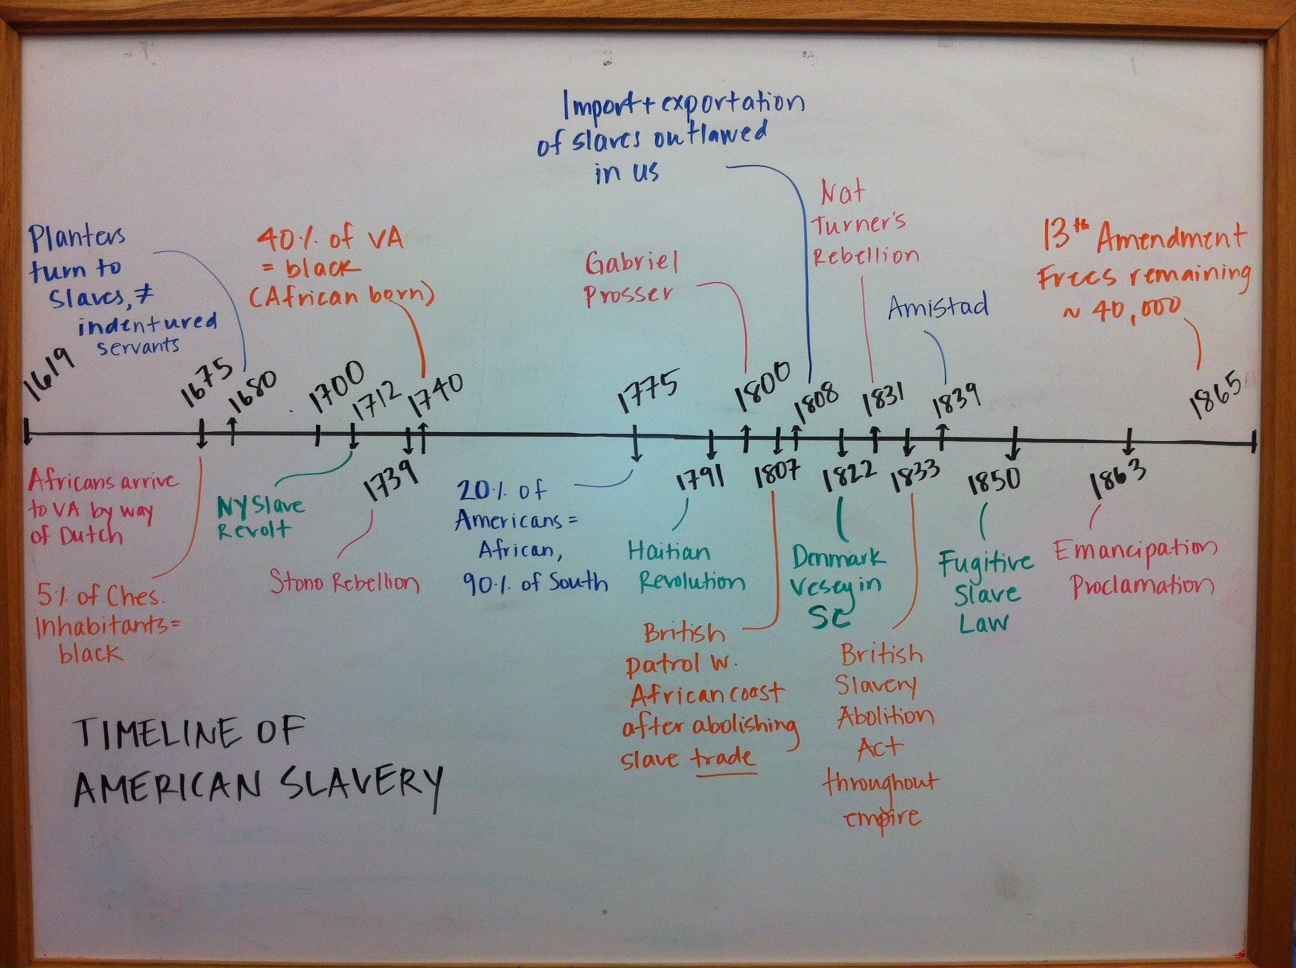 Import + exportation
of slaves outlawed
in US
Nat
Turner's
Rebellion
Planters
turn to
slaves, ≠
indentured
servants
40% of VA
= black
(African born)
Gabriel
Prosser
Amistad
13th Amendment
Frees remaining
~ 40,000
1619
1675
1680
1700
1712
1740
1775
1800
1808
1831
1839
1865
1739
1791
1807
1822
1833
1850
1863
Africans arrive
to VA by way
of Dutch
NY Slave
Revolt
Stono Rebellion
20% of
Americans =
African,
90% of South
Haitian
Revolution
Denmark
Vesey in
SC
Fugitive
Slave
Law
Emancipation
Proclamation
5% of Ches.
Inhabitants =
black
British
patrol w.
African coast
after abolishing
slave trade
British
Slavery
Abolition
Act
throughout
empire
TIMELINE OF
AMERICAN SLAVERY